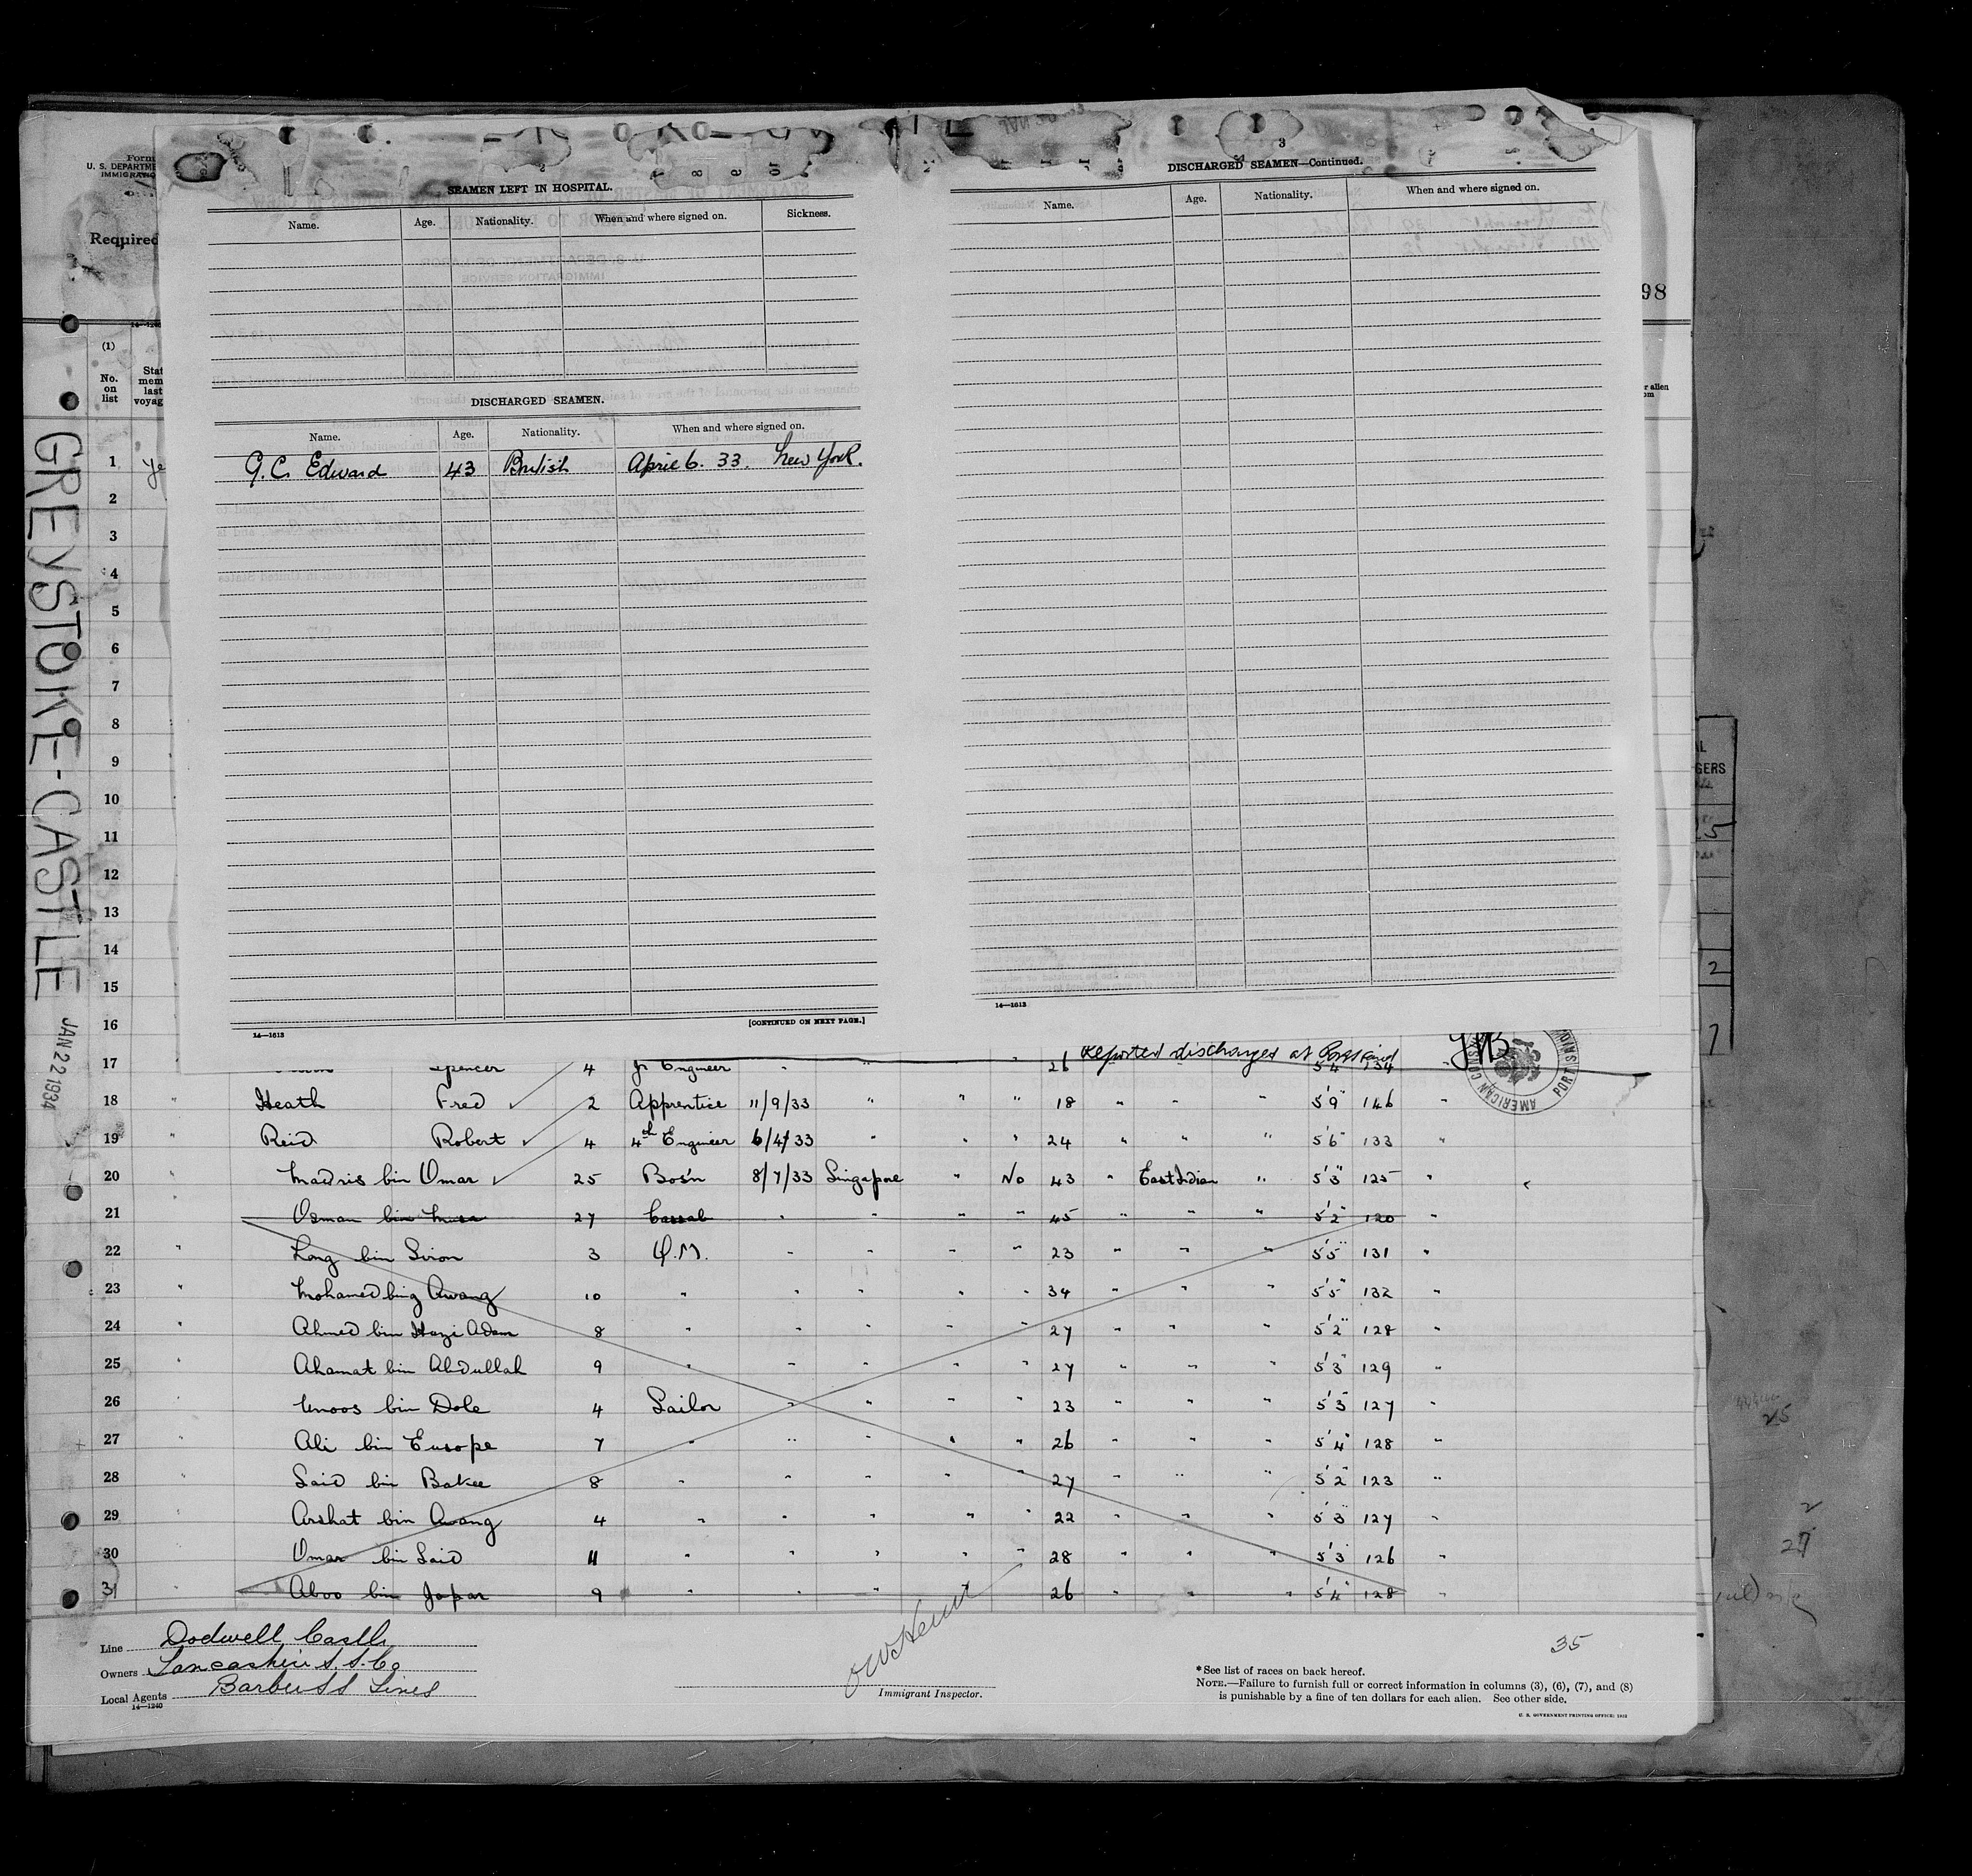 Form
U. S. DEPARTM
IMMIGRATIO
Required
98
(1)
No.
on
list
Stat
mem
last
voyag
r alien
om
GREYSTOKE-CASTLE
JAN 22 1934
2
SEAMEN LEFT IN HOSPITAL.
Name. Age. Nationality. When and where signed on. Sickness.
DISCHARGED SEAMEN.
Name. Age. Nationality. When and where signed on.
G. C. Edward 43 British April 6. 33. New York.
14—1613 [CONTINUED ON NEXT PAGE.]
3
DISCHARGED SEAMEN—Continued.
Name. Age. Nationality. When and where signed on.
14—1613
1 Ye
2
3
4
5
6
7
8
9
10
11
12
13
14
15
16
Reported discharged at Port Said
AMERICAN CONSU PORT SAID
17 Spencer 4 Jr Engineer " " " 26 5'4" 134 "
18 " Heath Fred 2 Apprentice 11/9/33 " " " 18 " " " 5'9" 146 "
19 " Reid Robert 4 4th Engineer 6/4/33 " " " 24 " " " 5'6" 133 "
20 " Madris bin Omar 25 Bos'n 8/7/33 Singapore " No 43 " East Indian " 5'3" 125 "
21 Osman bin Musa 27 Cassab " " " " 45 " " " 5'2" 120 "
22 " Long bin Siron 3 Q.M. " " " " 23 " " " 5'5" 131 "
23 " Mohamed bing Awang 10 " " " " " 34 " " " 5'5" 132 "
24 " Ahmed bin Hazi Adam 8 " " " " " 27 " " " 5'2" 128 "
25 " Ahamat bin Abdullah 9 " " " " " 27 " " " 5'3" 129 "
26 " Unoos bin Dole 4 Sailor " " " " 23 " " " 5'3" 127 "
27 " Ali bin Eusope 7 " " " " " 26 " " " 5'4" 128 "
28 " Said bin Bakee 8 " " " " " 27 " " " 5'2" 123 "
29 " Arshat bin Awang 4 " " " " " 22 " " " 5'3" 127 "
30 " Omar bin Said 11 " " " " " 28 " " " 5'3" 126 "
31 " Aboo bin Japar 9 " " " " " 26 " " " 5'4" 128 "
Line Dodwell Castle
Owners Lancashire S. S. Co
Local Agents Barber SS Lines
14—1240
Immigrant Inspector.
35
*See list of races on back hereof.
NOTE.—Failure to furnish full or correct information in columns (3), (6), (7), and (8)
is punishable by a fine of ten dollars for each alien. See other side.
U. S. GOVERNMENT PRINTING OFFICE: 1932
AL
GERS
2
25
2
27